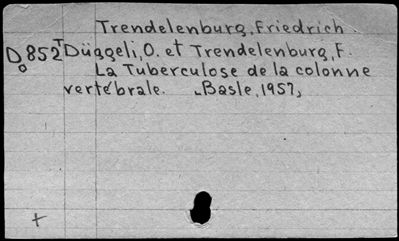 Trendelenburg, Friedrich.
Do852T Düggeli, O. et Trendelenburg, F.
La Tuberculose de la colonne
vertébrale. Basle, 1957,
+